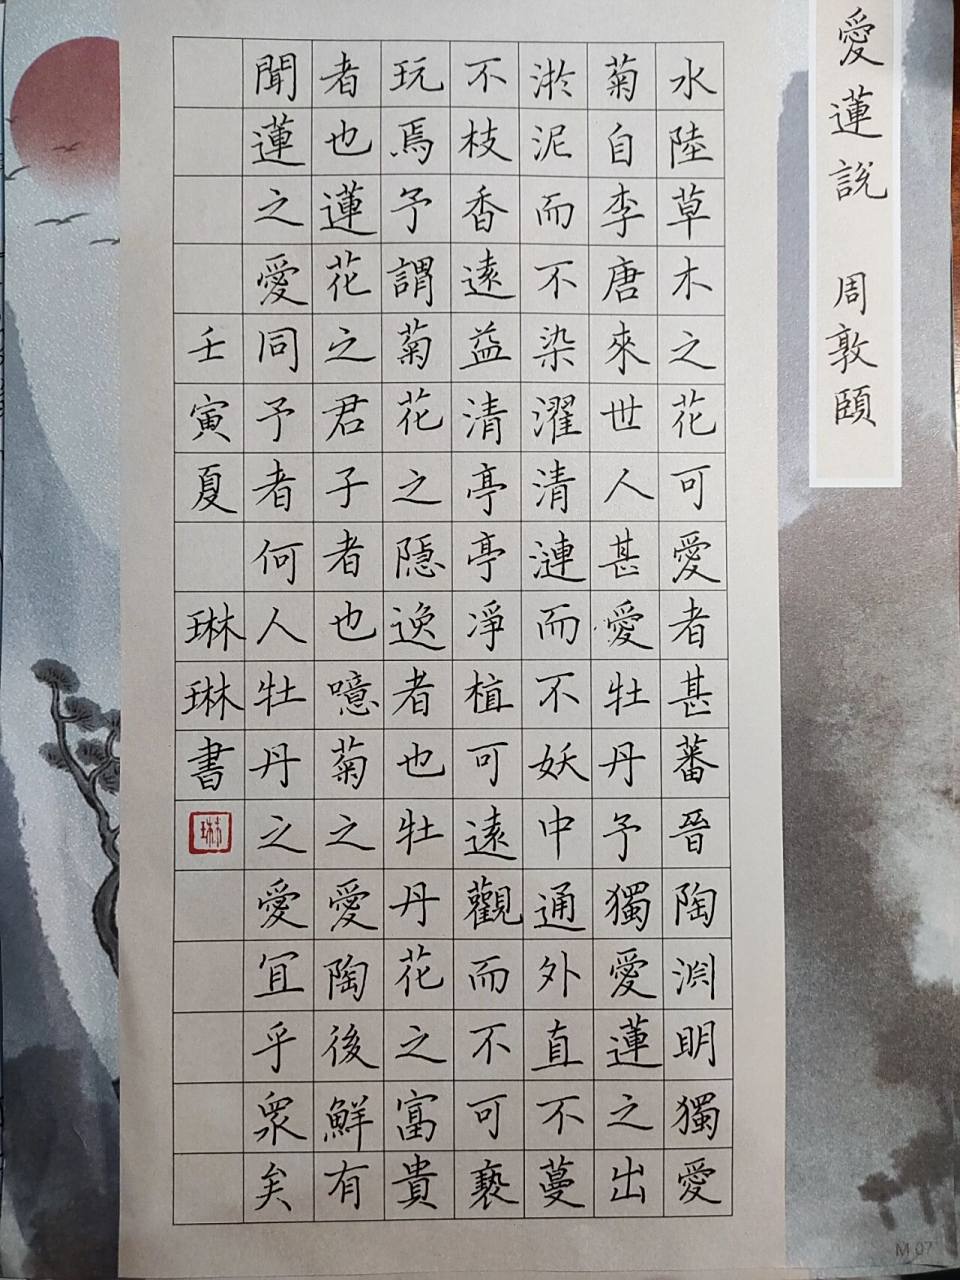 愛蓮說 周敦頤
水陸草木之花可愛者甚蕃晉陶淵明獨愛
菊自李唐來世人甚愛牡丹予獨愛蓮之出
淤泥而不染濯清漣而不妖中通外直不蔓
不枝香遠益清亭亭淨植可遠觀而不可褻
玩焉予謂菊花之隱逸者也牡丹花之富貴
者也蓮花之君子者也噫菊之愛陶後鮮有
聞蓮之愛同予者何人牡丹之愛宜乎衆矣
壬寅夏 琳琳書
琳
M 07